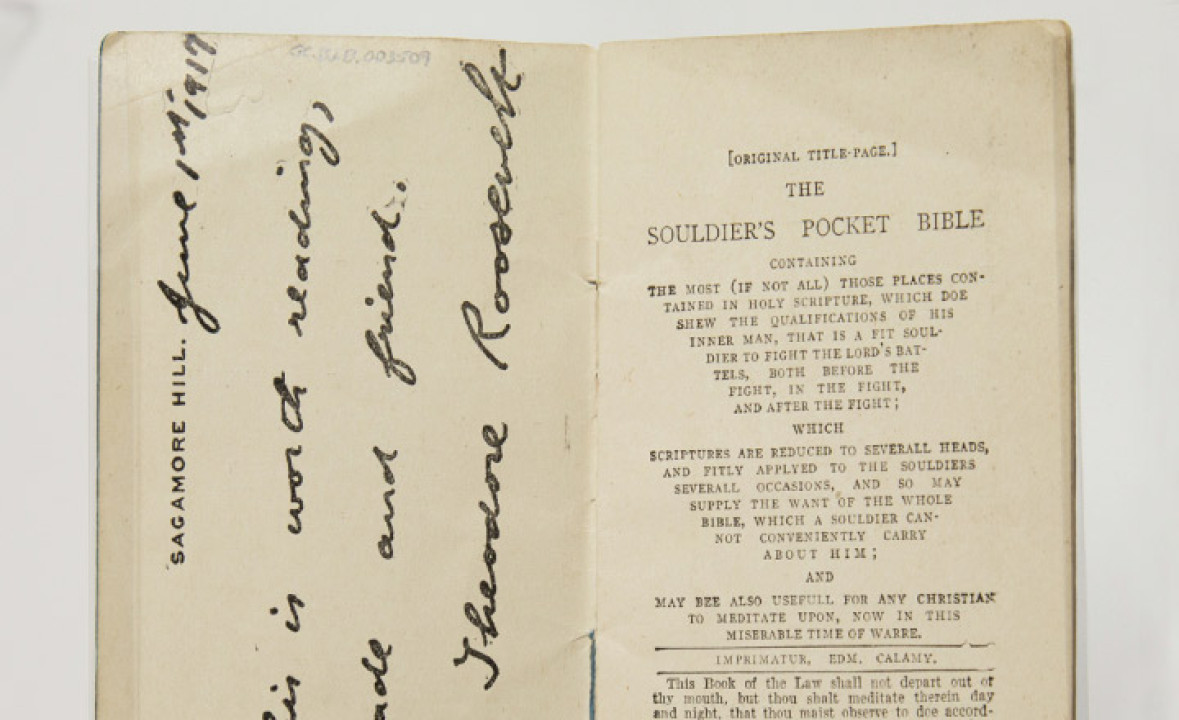 GC.BUB.003509
SAGAMORE HILL. June 1st 1917
is worth reading,
and friend.
Theodore Roosevelt
[ORIGINAL TITLE-PAGE.]
THE
SOULDIER'S POCKET BIBLE
CONTAINING
THE MOST (IF NOT ALL) THOSE PLACES CON-
TAINED IN HOLY SCRIPTURE, WHICH DOE
SHEW THE QUALIFICATIONS OF HIS
INNER MAN, THAT IS A FIT SOUL-
DIER TO FIGHT THE LORD'S BAT-
TELS, BOTH BEFORE THE
FIGHT, IN THE FIGHT,
AND AFTER THE FIGHT;
WHICH
SCRIPTURES ARE REDUCED TO SEVERALL HEADS,
AND FITLY APPLYED TO THE SOULDIERS
SEVERALL OCCASIONS, AND SO MAY
SUPPLY THE WANT OF THE WHOLE
BIBLE, WHICH A SOULDIER CAN-
NOT CONVENIENTLY CARRY
ABOUT HIM;
AND
MAY BEE ALSO USEFULL FOR ANY CHRISTIAN
TO MEDITATE UPON, NOW IN THIS
MISERABLE TIME OF WARRE.
IMPRIMATUR, EDM. CALAMY.
This Book of the Law shall not depart out of
thy mouth, but thou shalt meditate therein day
and night, that thou maist observe to doe accord-